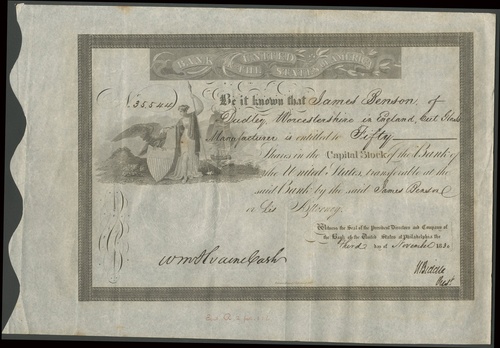 BANK OF THE UNITED STATES OF AMERICA
No 35544 Be it known that James Benson, of
Dudley, Worcestershire in England, Cut Glass
Manufacturer is entitled to Fifty
Shares in the Capital Stock of the Bank of
the United States, transferable at the
said Bank by the said James Benson
or his Attorney.
Witness the Seal of the President Directors and Company of
the Bank of the United States at Philadelphia the
Third day of November 183
Wm McIlvaine Cash
N Biddle
Prest